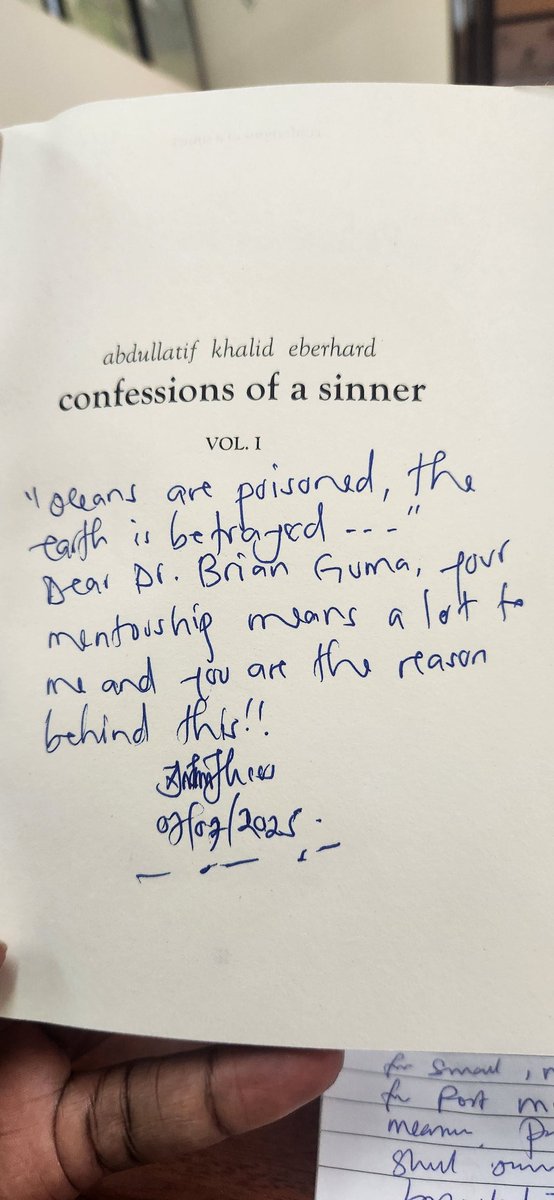 abdullatif khalid eberhard
confessions of a sinner
VOL. I
"oceans are poisoned, the
earth is betrayed ---"
Dear Dr. Brian Guma, your
mentorship means a lot to
me and you are the reason
behind this!!
07/07/2025.
for small,
for Port
Shul